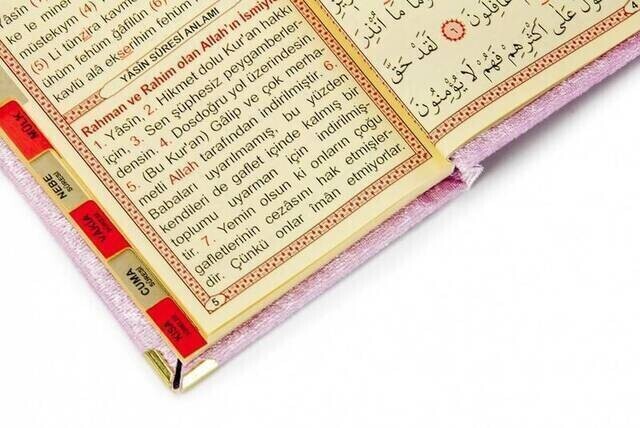 müstekıym (4)
(5) Li tünzira kavmen
ühüm fehüm ğâfilûn (6)
kavlü alâ ekserihim fehüm
YÂSİN SÛRESİ ANLAMI
Rahman ve Rahim olan Allah'ın ismiyle
1. Yâsîn. 2. Hikmet dolu Kur'an hakkı
için, 3. Sen şüphesiz peygamberler-
densin. 4. Dosdoğru yol üzerindesin.
5. (Bu Kur'an) Gâlip ve çok merha-
metli Allah tarafından indirilmiştir. 6.
Babaları uyarılmamış, bu yüzden
kendileri de gaflet içinde kalmış bir
toplumu uyarman için indirilmiş-
tir. 7. Yemin olsun ki onların çoğu
gafletlerinin cezasını hak etmişler-
dir. Çünkü onlar îmân etmiyorlar.
5
مَا أُنْذِرَ
غَافِلُونَ ﴿٦﴾ لَقَدْ حَقَّ
الْقَوْلُ عَلَى أَكْثَرِهِمْ فَهُمْ لَا يُؤْمِنُونَ
MÜLK
NEBE
SÛRESİ
VAKIA
SÛRESİ
CUMA
SÛRESİ
KISA
SÛRELER